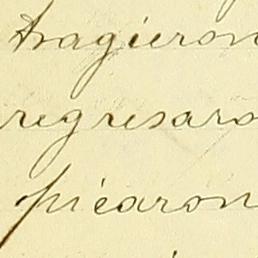 tragieron
regresaro
picaron